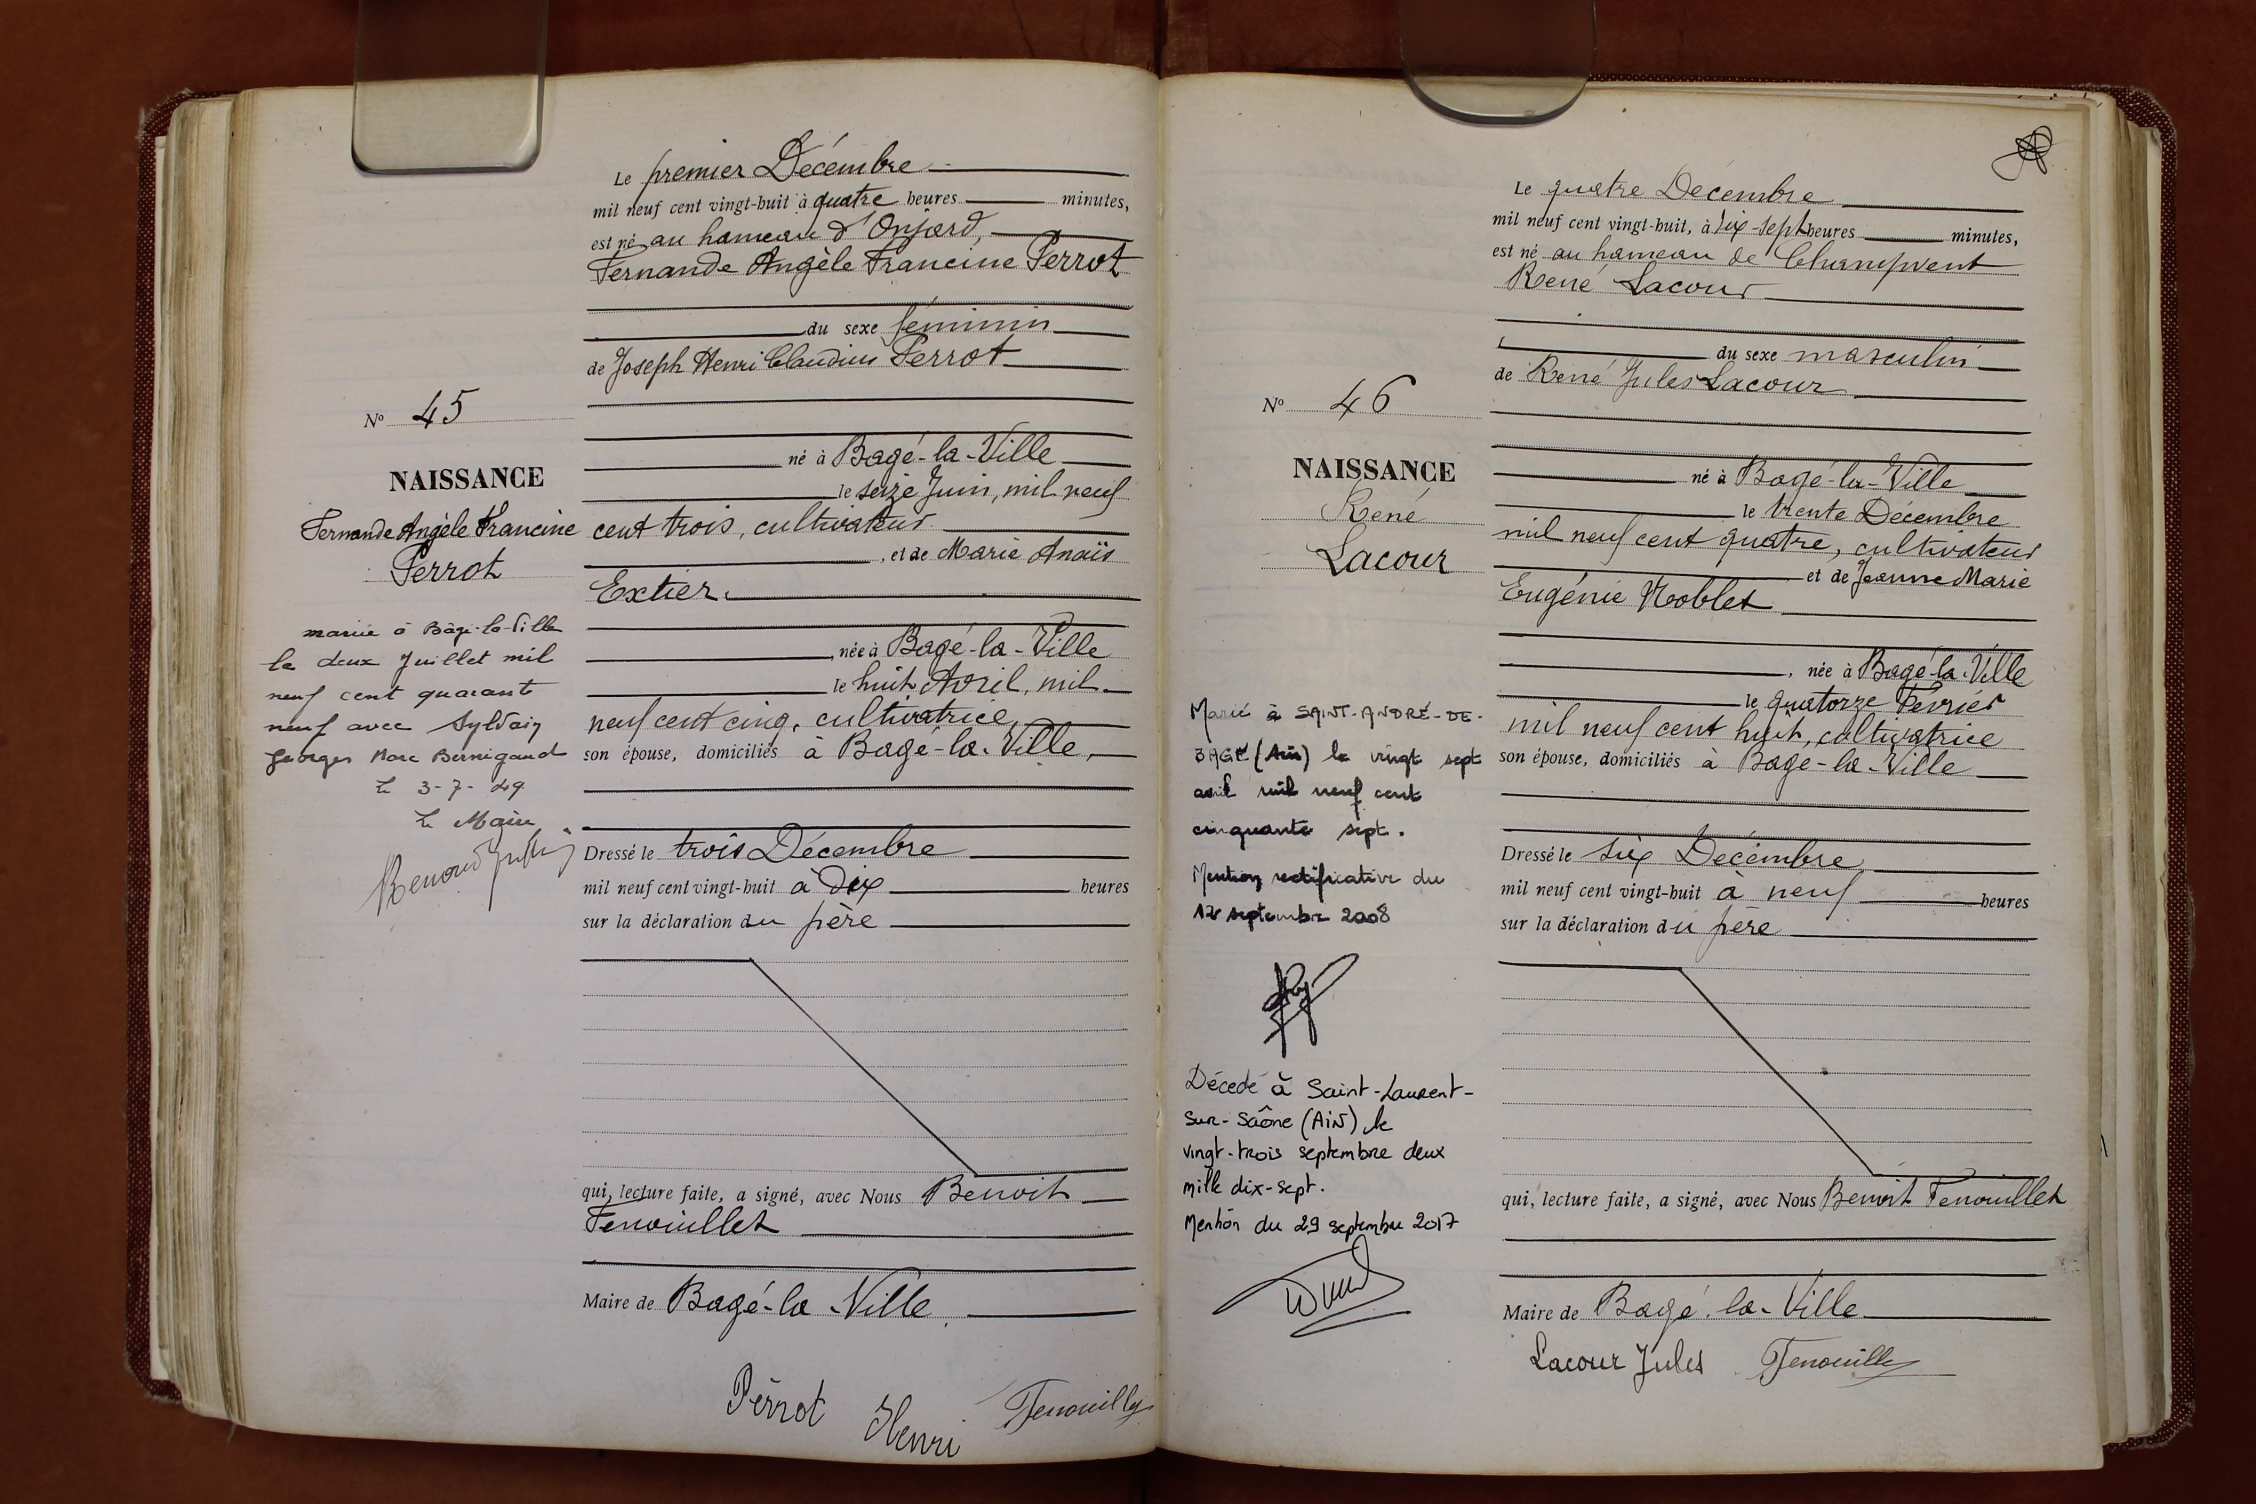 Le premier Décembre
mil neuf cent vingt-huit à quatre heures minutes,
est né au hameau d'Onjard,
Fernande Angèle Francine Perrot
du sexe féminin
de Joseph Henri Claudius Perrot
né à Bagé-la-Ville
le seize Juin, mil neuf
cent trois, cultivateur
, et de Marie Anaïs
Extier.
, née à Bagé-la-Ville
le huit Avril, mil
neuf cent cinq, cultivatrice,
son épouse, domiciliés à Bagé-la-Ville,
Dressé le trois Décembre
mil neuf cent vingt-huit à dix heures
sur la déclaration du père
qui, lecture faite, a signé, avec Nous Benoit
Fenouillet
Maire de Bagé-la-Ville
Perrot Henri
N° 45
NAISSANCE
Fernande Angèle Francine
Perrot
mariée à Bâgé-la-Ville
le deux Juillet mil
neuf cent quarante
neuf avec Sylvain
Georges Marc Bernigaud
le 3-7-49
Le Maire
Le quatre Décembre
mil neuf cent vingt-huit, à dix-sept heures minutes,
est né au hameau de Champvent
René Lacour
du sexe masculin
de René Jules Lacour
né à Bagé-la-Ville
le trente Décembre
mil neuf cent quatre, cultivateur
et de Jeanne Marie
Eugénie Noblet
, née à Bagé-la-Ville
le quatorze Février
mil neuf cent huit, cultivatrice
son épouse, domiciliés à Bagé-la-Ville
Dressé le six Décembre
mil neuf cent vingt-huit à neuf heures
sur la déclaration du père
qui, lecture faite, a signé, avec Nous Benoit Fenouillet
Maire de Bagé-la-Ville
Lacour Jules
N° 46
NAISSANCE
René
Lacour
Marié à SAINT-ANDRÉ-DE-
BAGÉ (Ain) le vingt sept
avril mil neuf cent
cinquante sept.
Mention rectificative du
12 septembre 2008
Décédé à Saint-Laurent-
sur-Saône (AIN) le
vingt-trois septembre deux
mille dix-sept.
Mention du 29 septembre 2017